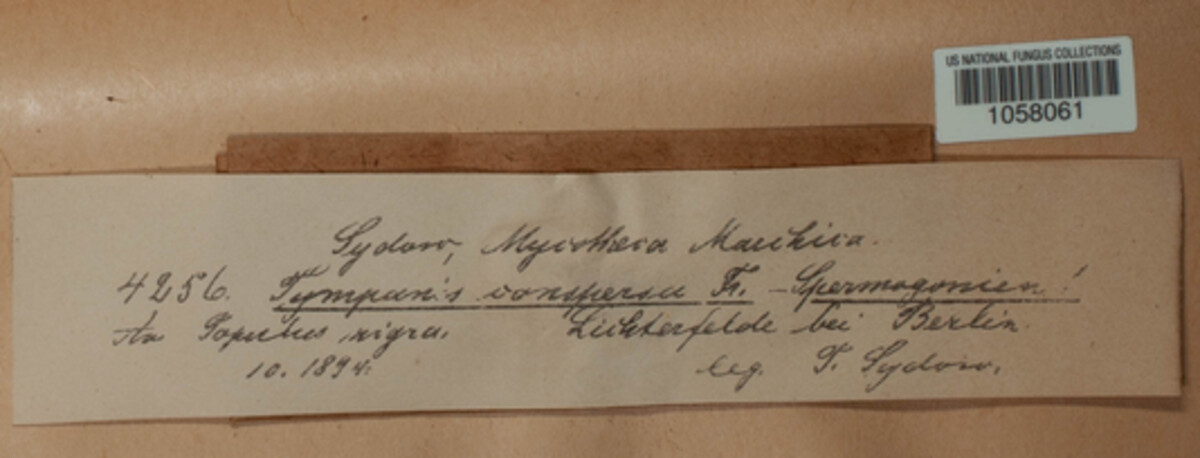 US NATIONAL FUNGUS COLLECTIONS
1058061
Sydow, Mycotheca Marchica.
4256. Tympanis conspersa Fr. - Spermogonien!
An Populus nigra. Lichterfelde bei Berlin.
10. 1894. leg. P. Sydow.